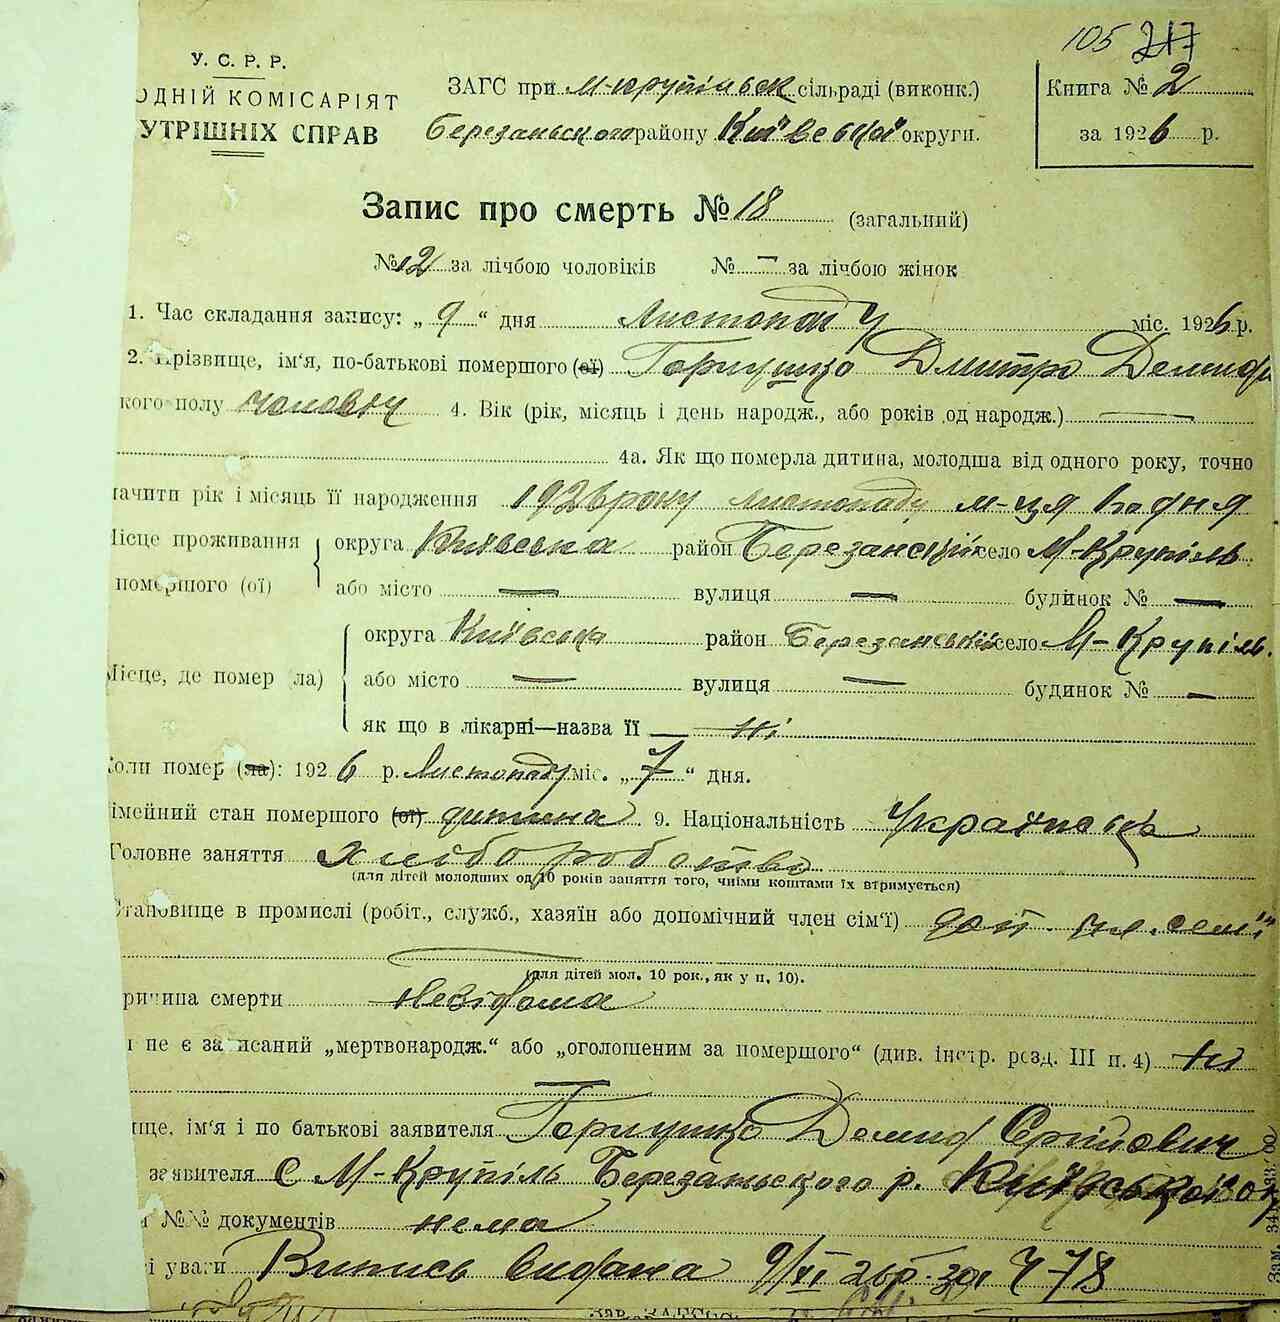 105 217
У. С. Р. Р.
ОДНІЙ КОМІСАРІЯТ
УТРІШНІХ СПРАВ
ЗАГС при М-Крупільск сільраді (виконк.)
Березанського району Київської округи.
Книга № 2
за 1926 р.
Запис про смерть № 18 (загальний)
№ 12 за лічбою чоловіків № — за лічбою жінок
1. Час складання запису: „ 9 “ дня Листопаду міс. 1926 р.
2. Прізвище, ім'я, по-батькові померлого (ої) Дмитро Демид
кого полу чоловіч 4. Вік (рік, місяць і день народж., або років од народж.) —
4а. Як що померла дитина, молодша від одного року, точно
начити рік і місяць її народження 1926 року листопаду м-ця дня
Місце проживання округа Київська район Березанський село М-Крупіль
помершого (ої) або місто — вулиця — будинок № —
округа Київська район Березанський село М-Крупіль.
Місце, де помер ла) або місто — вулиця — будинок № —
як що в лікарні—назва її ні
Коли помер (ла): 1926 р. Листопаду міс. „ 7 “ дня.
імейний стан помершого (ої) дитина 9. Національність Українець
Головне заняття хліборобство
(для дітей молодших од 10 років заняття того, чиїми коштами їх втримується)
Становище в промислі (робіт., служб., хазяїн або допомічний член сім'ї) доп. чл. сем'ї
(для дітей мол. 10 рок., як у п. 10).
ричина смерти невідома
и не є записаний „мертвонародж.“ або „оголошеним за помершого“ (див. інстр. розд. III п. 4) ні
ище, ім'я і по батькові заявителя Демид Сергійович
заявителя С М-Крупіль Березанського р. Київської ок
і №№ документів нема
і уваги Випись видана 9/XI 26 р. за Ч 78
Зав. ЗАГС'ом